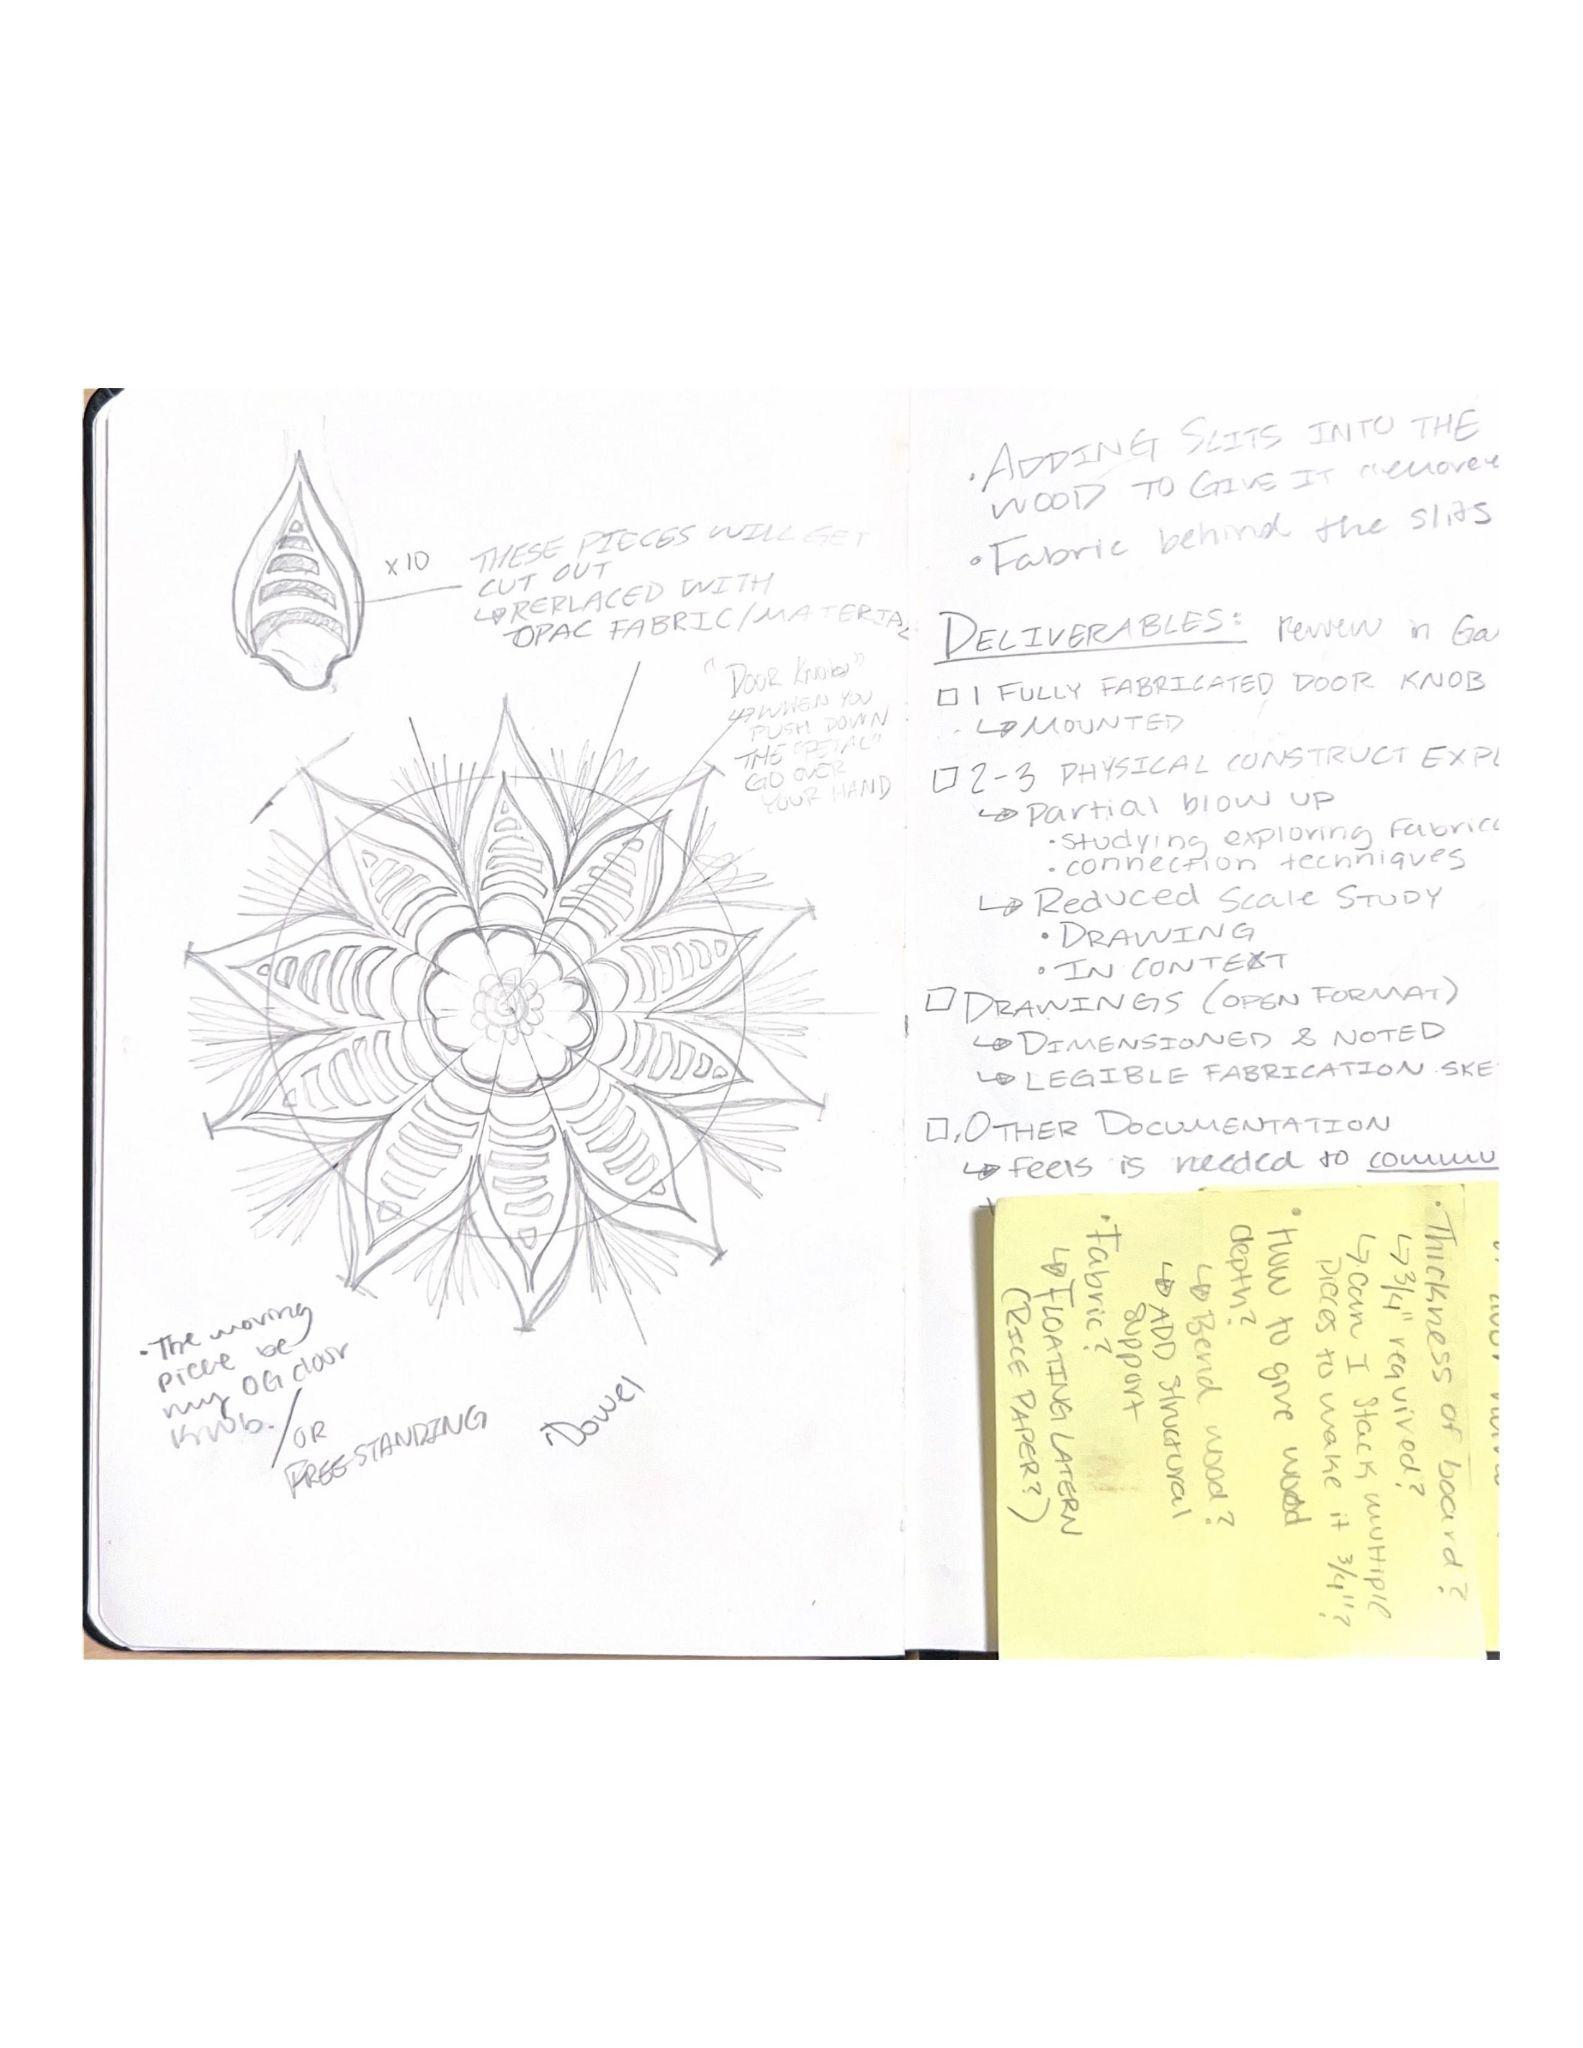 x10
THESE PIECES WILL GET
CUT OUT
↳ REPLACED WITH
OPAC FABRIC/MATERIAL
"DOOR KNOB"
↳ WHEN YOU
PUSH DOWN
THE "PETAL"
GO OVER
YOUR HAND
• The moving
piece be
my OG door
knob. / OR
FREESTANDING
Dowel
• ADDING SLITS INTO THE
WOOD TO GIVE IT
• Fabric behind the slits
DELIVERABLES: Review in
□ 1 FULLY FABRICATED DOOR KNOB
↳ MOUNTED
□ 2-3 PHYSICAL CONSTRUCT EXPL
↳ Partial blow up
• studying exploring Fabric
• connection techniques
↳ Reduced Scale STUDY
• DRAWING
• IN CONTEXT
□ DRAWINGS (OPEN FORMAT)
↳ DIMENSIONED & NOTED
↳ LEGIBLE FABRICATION SKE
□ OTHER DOCUMENTATION
↳ Feels is needed to commu
• Thickness of board?
↳ 3/4" required?
↳ can I stack multiple
pieces to make it 3/4"?
• How to give wood
depth?
↳ Bend wood?
↳ ADD structural
support
• Fabric?
↳ FLOATING LATERN
(RICE PAPER?)